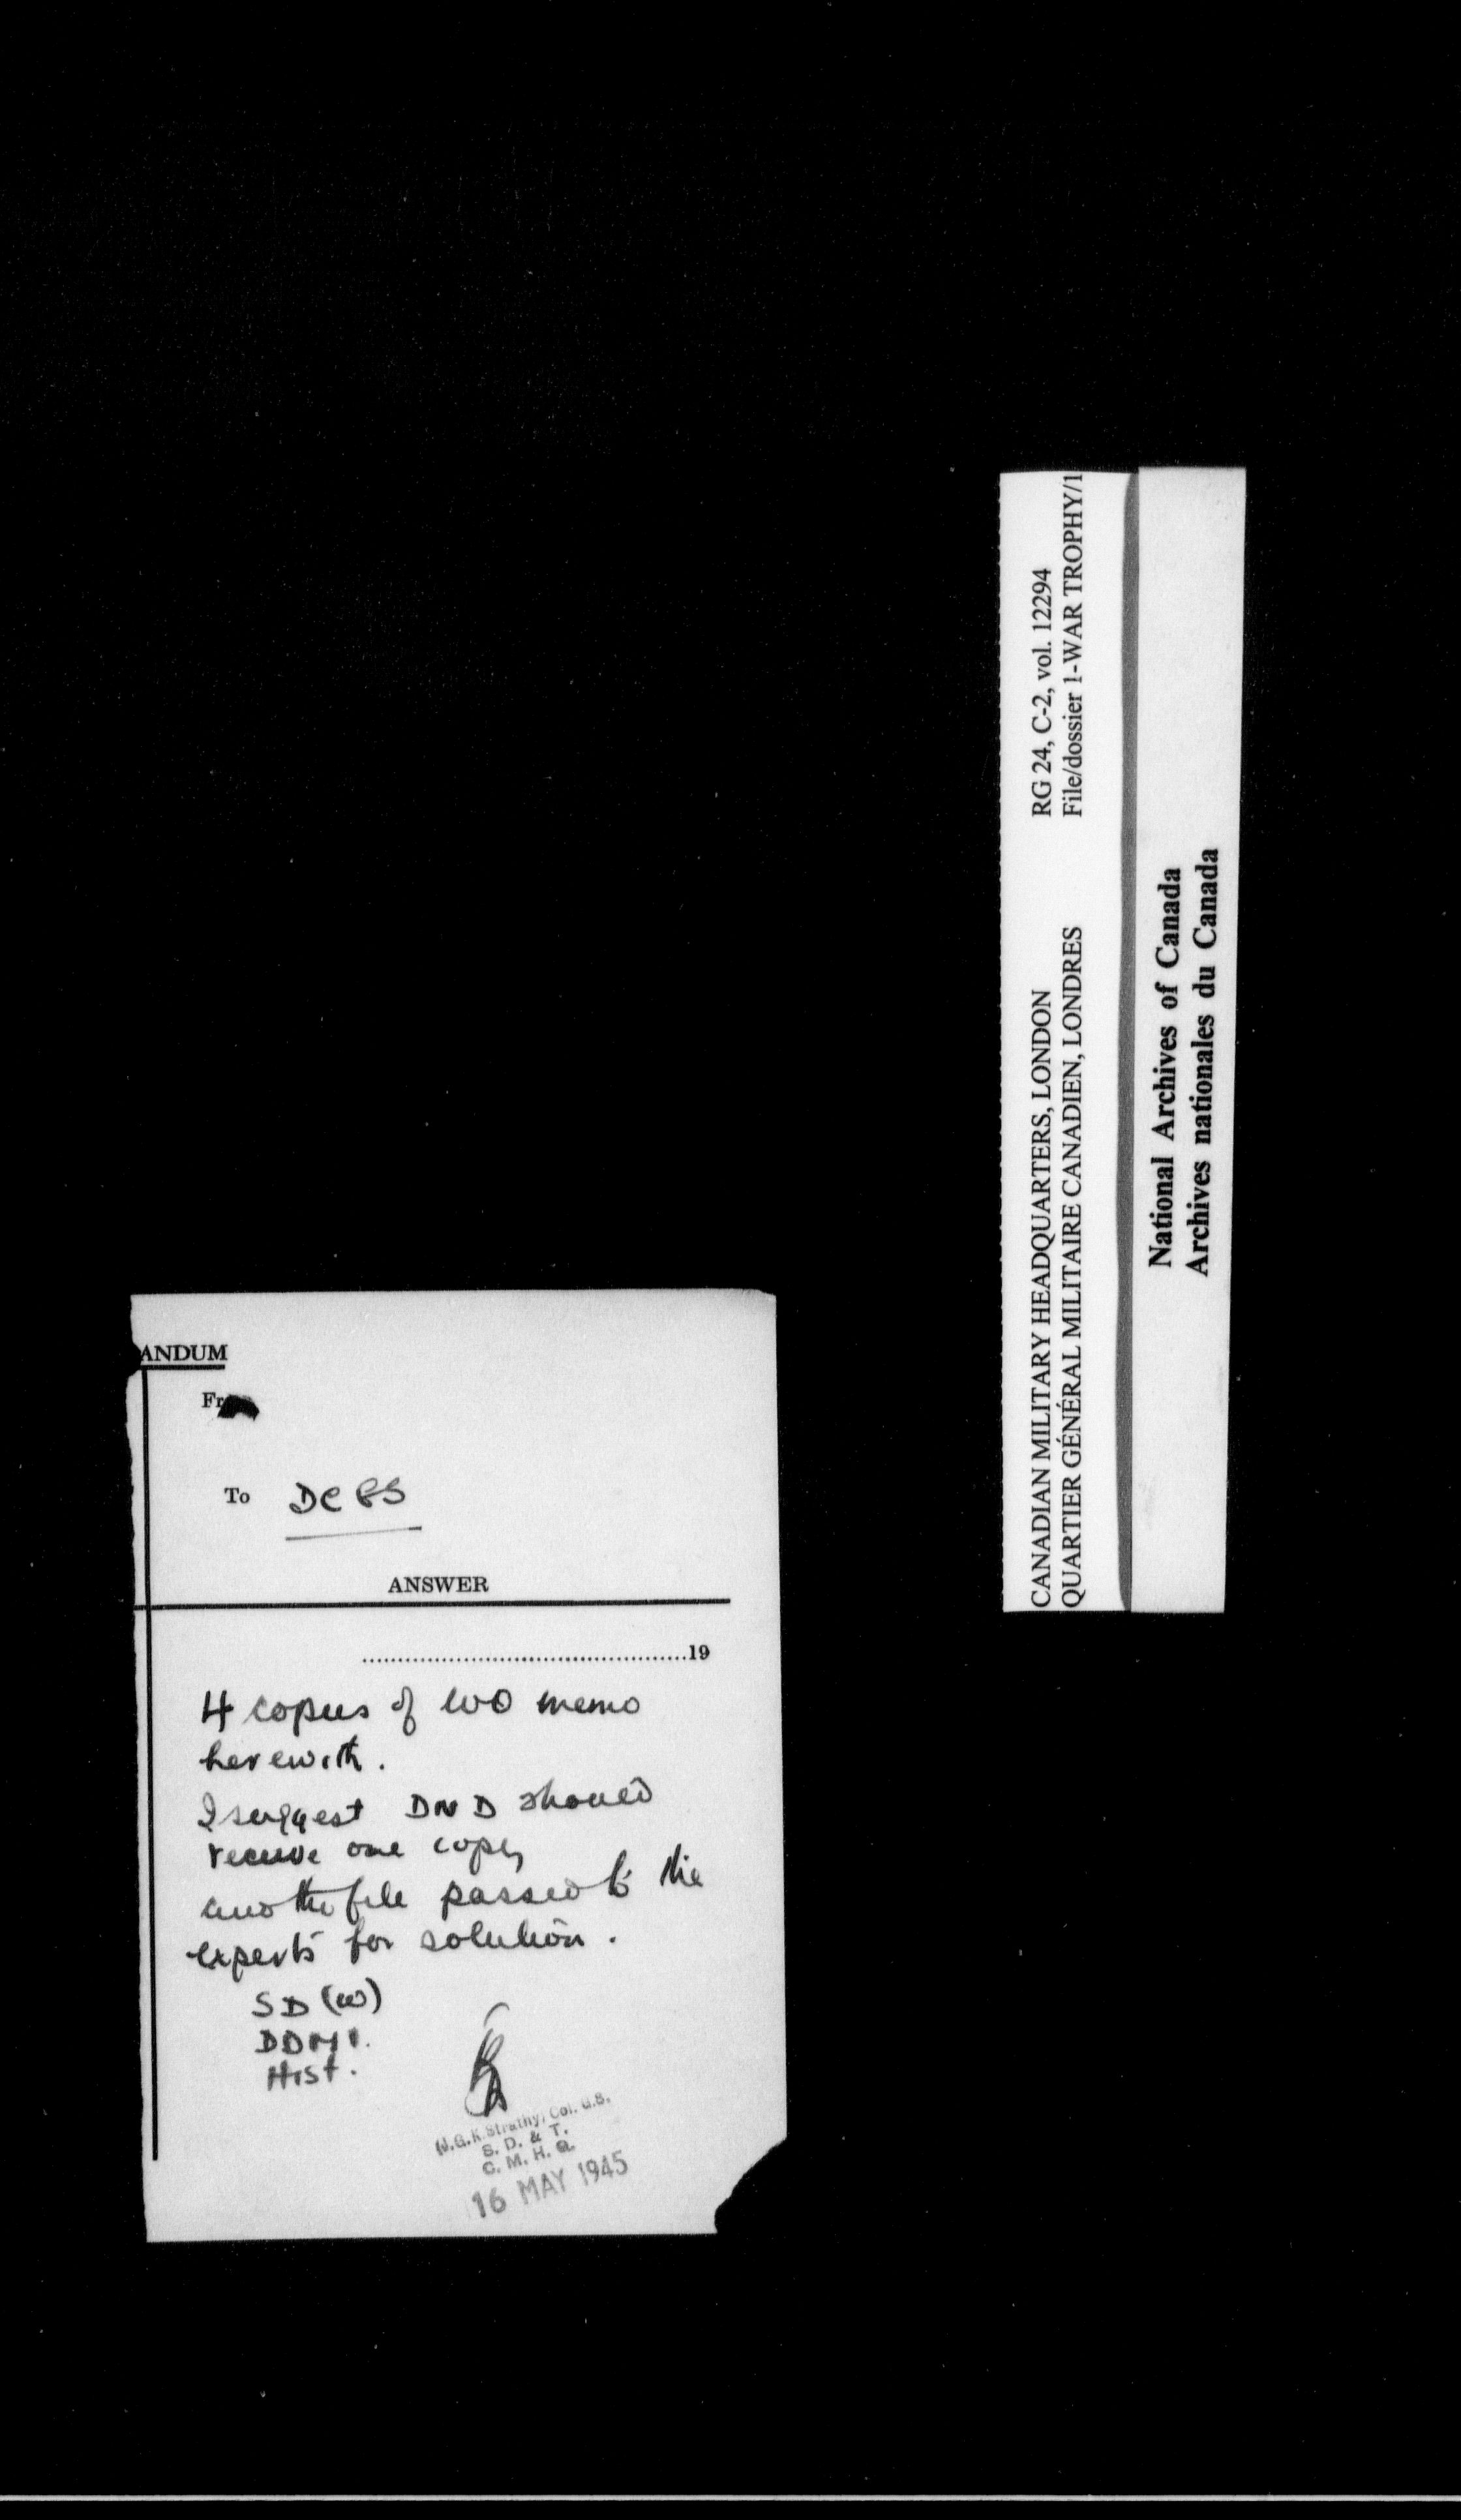 ANDUM
Fr
To DCGS
ANSWER
19
4 copies of WO memo
herewith.
I suggest DND should
receive one copy,
and the file passed to the
experts for solution.
SD (w)
DDMI.
Hist.
(J.G.K. Strathy) Col. G.S.
S. D. & T.
C. M. H. Q.
16 MAY 1945
CANADIAN MILITARY HEADQUARTERS, LONDON RG 24, C-2, vol. 12294
QUARTIER GÉNÉRAL MILITAIRE CANADIEN, LONDRES File/dossier 1-WAR TROPHY/1
National Archives of Canada
Archives nationales du Canada